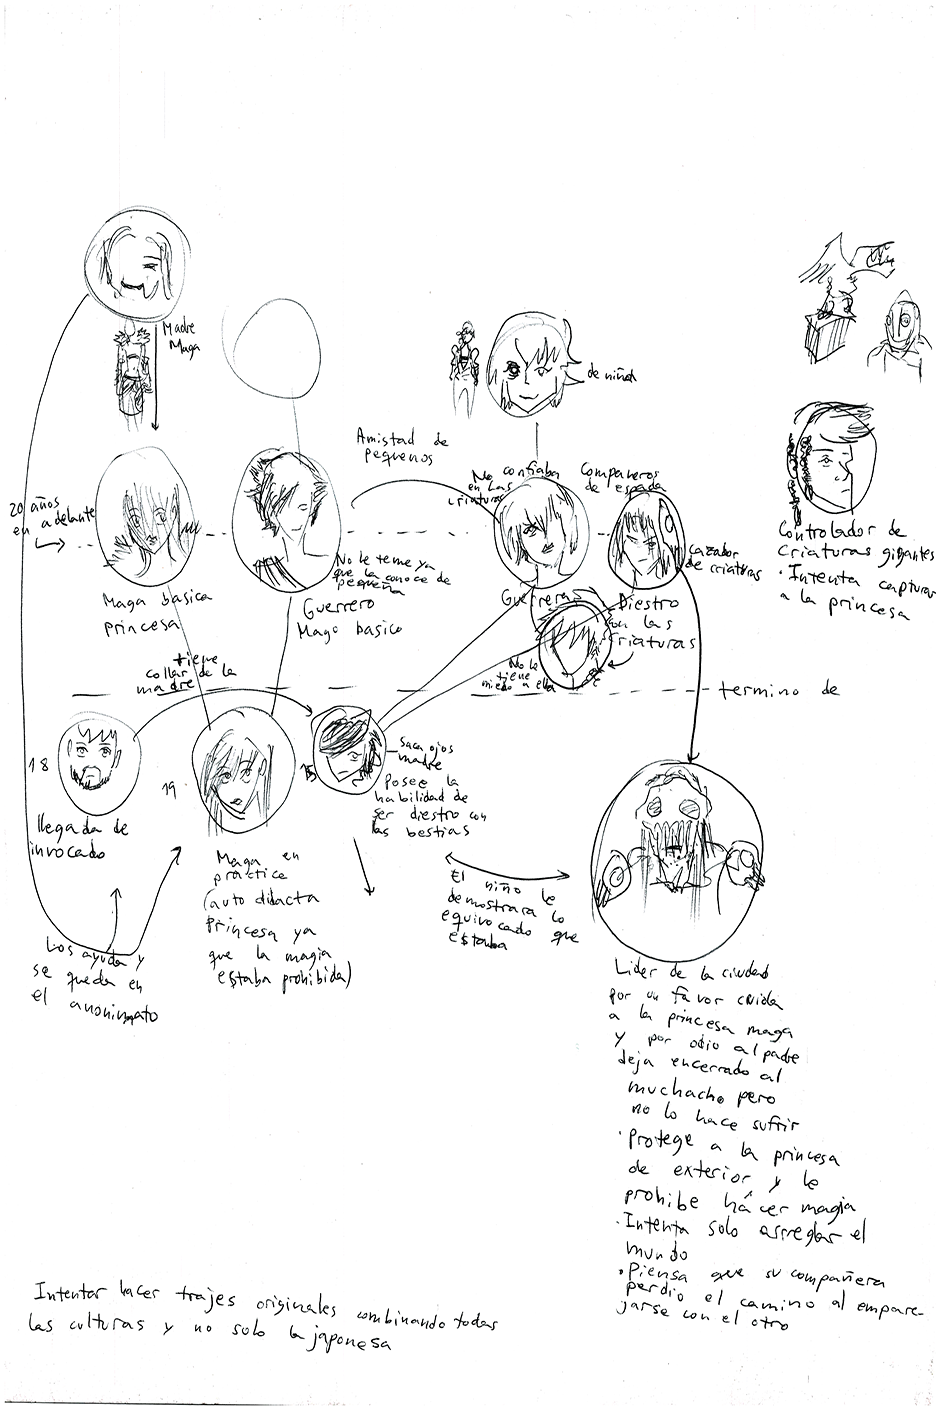 Madre
Maga
de niña
Amistad de
pequeños
No confiaba
en las
criaturas
Compañeros
de espada
20 años
en adelante
Cazador
de criaturas
Controlador de
Criaturas gigantes
· Intenta capturar
a la princesa
No le teme ya
que la conoce de
pequeña
Maga basica
princesa
Guerrero
Mago basico
Guerrera
Diestro
con las
criaturas
No le
tiene
miedo a ella
tiene
collar de la
madre
termino de
18
19
15
llegada de
invocado
Saca ojos
madre
Posee la
habilidad de
ser diestro con
las bestias
Maga en
practica
(auto didacta
Princesa ya
que la magia
estaba prohibida)
El niño le
demostrara lo
equivocado que
estaba
Los ayuda y
se queda en
el anonimato
Lider de la ciudad
por un favor cuida
a la princesa maga
y por odio al padre
deja encerrado al
muchacho pero
no lo hace sufrir
· Protege a la princesa
de exterior y le
prohibe hácer magia
· Intenta solo arreglar el
mundo
· Piensa que su compañera
perdio el camino al empare-
jarse con el otro
Intentar hacer trajes originales combinando todas
las culturas y no solo la japonesa